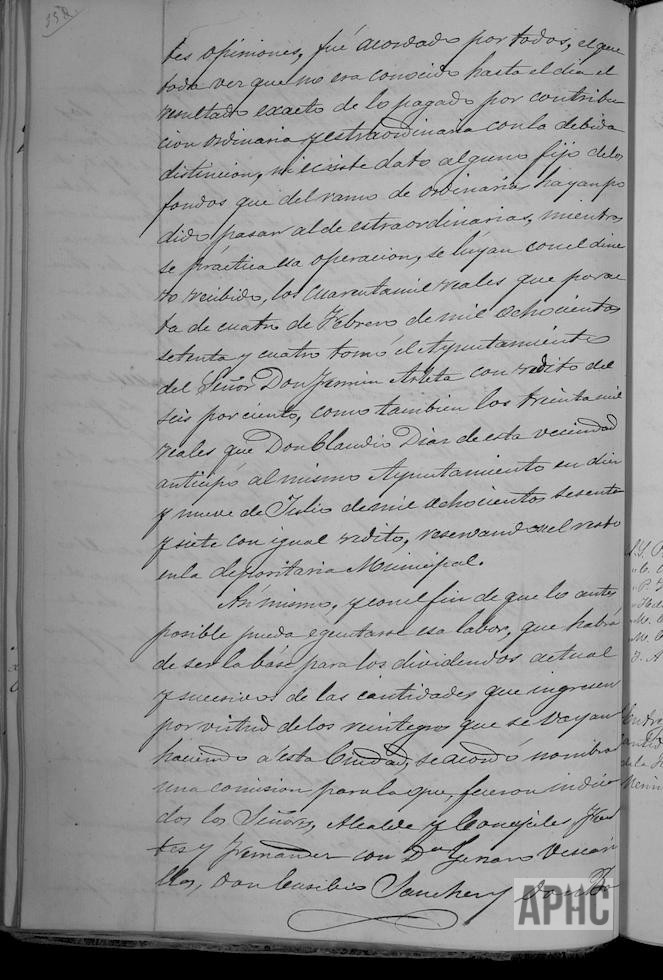 352.
tes opiniones, fué acordado por todos, el que
toda vez que no era conocido hasta el dia el
resultado exacto de lo pagado por contribu
cion ordinaria y estraordinaria con la debida
distincion, ni existe dato alguno fijo de los
fondos que del ramo de ordinarias hayan po
dido pasar al de estraordinarias, mientras
se práctica esa operacion, se luyan con el dine
ro recibido, los cuarenta mil reales que por ac
ta de cuatro de Febrero de mil ochocientos
setenta y cuatro tomó el Ayuntamiento
del Señor Don Fermin Arteta con redito del
seis por ciento, como tambien los treinta mil
reales que Don Claudio Diaz de esta vecindad
anticipó al mismo Ayuntamiento en diez
y nueve de Julio de mil ochocientos sesenta
y siete con igual redito, reservandose el resto
en la depositaria Municipal.
Asimismo, y con el fin de que lo antes
posible pueda egecutarse esa labor, que habrá
de ser la báse para los dividendos actual
y sucesivos de las cantidades que ingresen
por virtud de los reintegros que se vayan
haciendo á esta Ciudad, se acordó nombrar
una comision para la que fueron indica
dos los Señores, Alcalde y Concejales
y Fernandez con Dn Genaro
don Eusebio Sanchez y don
APHC